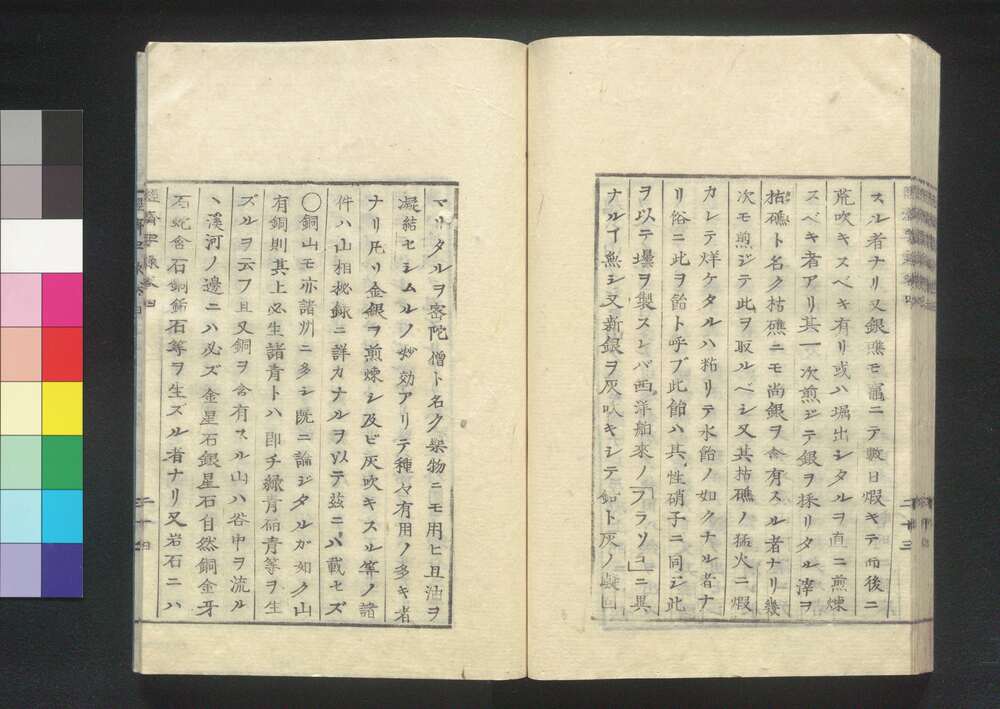 スル者ナリ又銀礁モ竈ニテ數日煆キテ而後ニ
荒吹キスベキ有リ或ハ堀出シタルヲ直ニ煎煉
スベキ者アリ其一次煎ジテ銀ヲ採リタル滓ヲ
枯礁ト名ク枯礁ニモ尚銀ヲ含有スル者ナリ幾
次モ煎ジテ此ヲ取ルベシ又其枯礁ノ猛火ニ煆
カレテ烊ケタルハ粘リテ水飴ノ如クナル者ナ
リ俗ニ此ヲ飴ト呼ブ此飴ハ其性硝子ニ同ジ此
ヲ以テ壜ヲ製スレバ西洋舶來ノ「フラソコ」ニ異
ナルヿ無シ又新銀ヲ灰吹キシテ鉛ト灰ノ
二十三
マリタルヲ密陀僧ト名ク染物ニモ用ヒ且油ヲ
凝結セシムルノ妙効アリテ種々有用ノ多キ者
ナリ凡リ金銀ヲ煎煉シ及ビ灰吹キスル等ノ諸
件ハ山相秘録ニ詳カナルヲ以テ茲ニハ載セズ
〇銅山モ亦諸州ニ多シ既ニ論ジタルガ如ク山
有銅則其上必生諸青トハ即チ緑青砠青等ヲ生
ズルヲ云フ且又銅ヲ含有スル山ハ谷中ヲ流ル
丶溪河ノ邊ニハ必ズ金星石銀星石自然銅金牙
石蛇含石銅鉐石等ヲ生ズル者ナリ又岩石ニハ
二十四